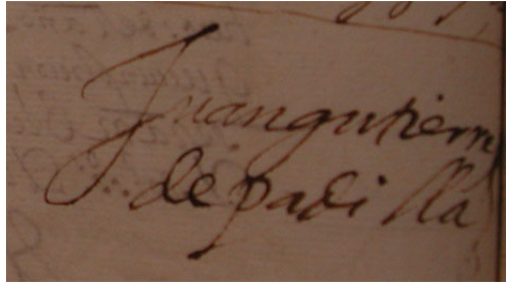 Juangutierre
depadilla